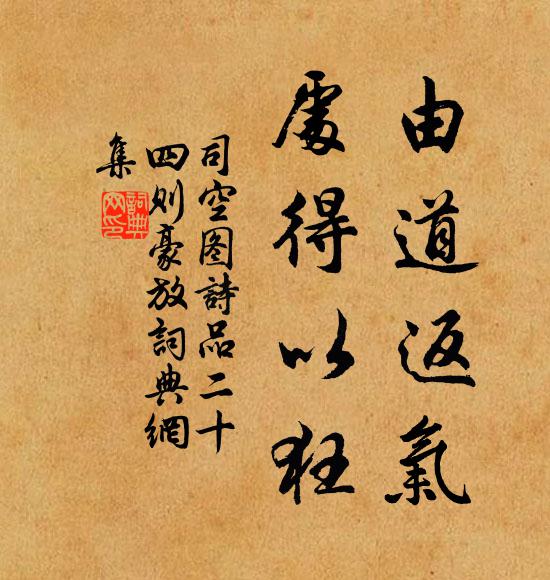 由道返氣
處得以狂
司空图詩品二十
四则豪放詞典網
集
詞典
网印